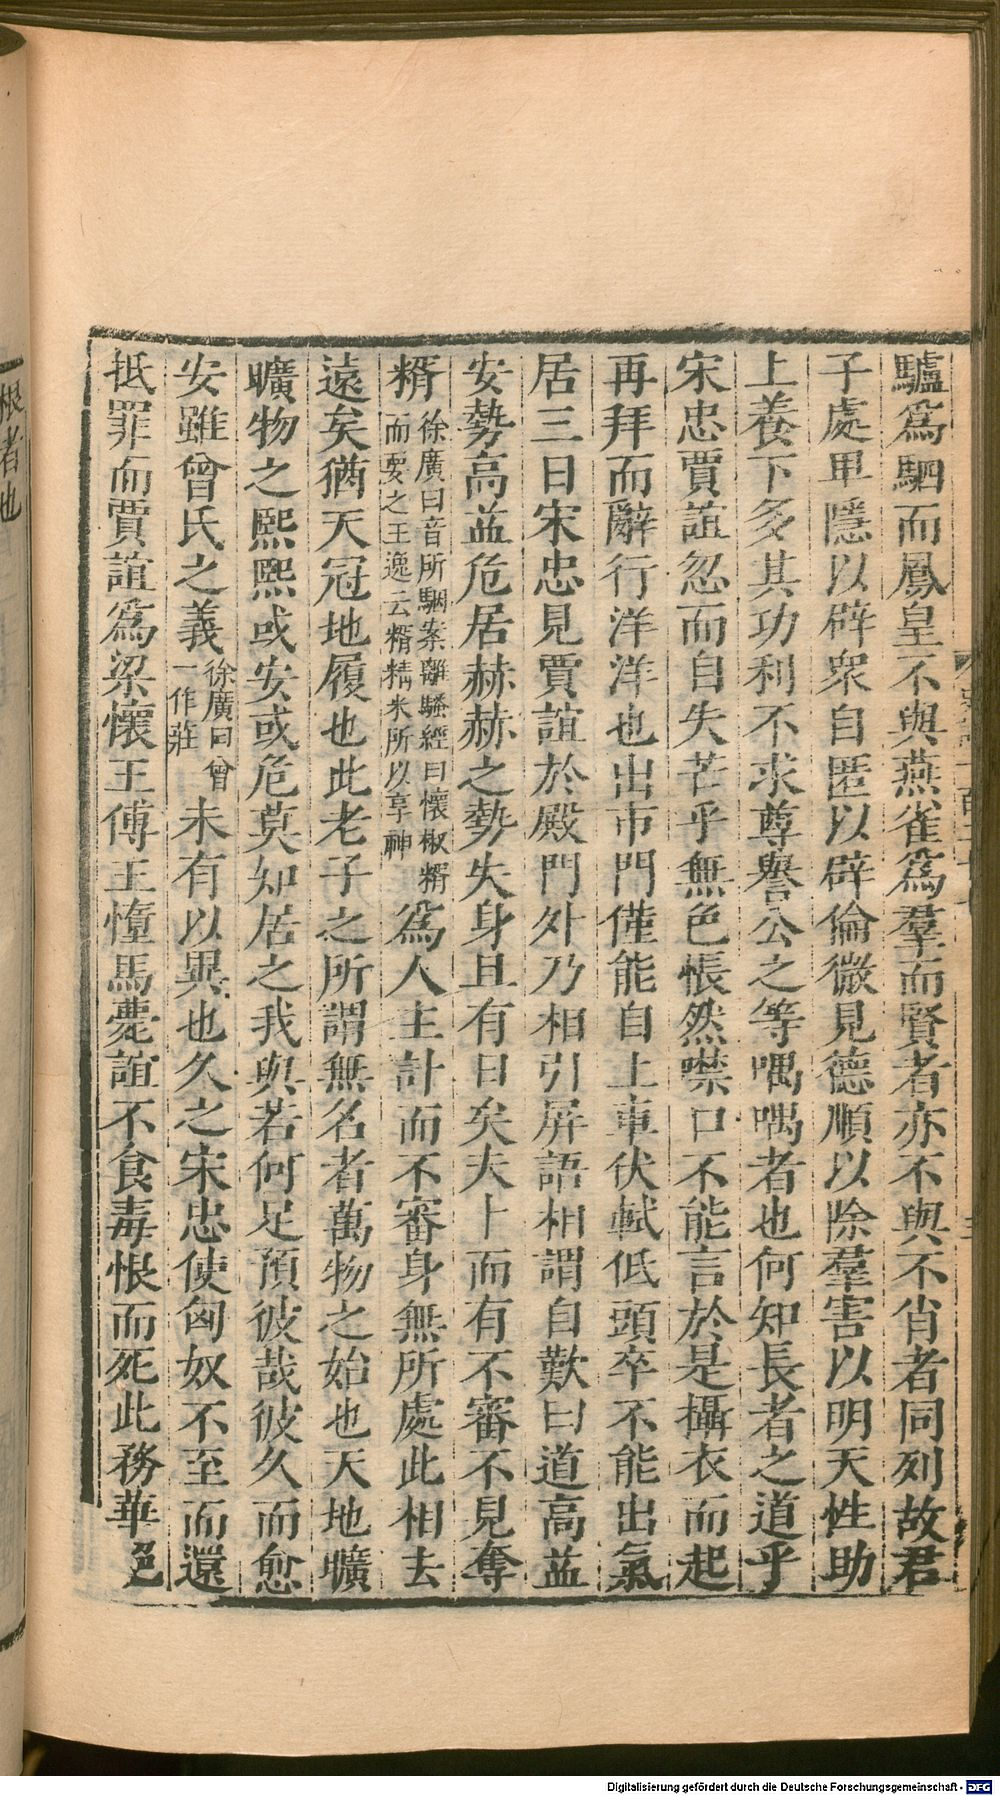 驢爲駟而鳳皇不與燕雀爲羣而賢者亦不與不肖者同列故君
子處卑隱以辟衆自匿以辟倫微見德順以除羣害以明天性助
上養下多其功利不求尊譽公之等喁喁者也何知長者之道乎
宋忠賈誼忽而自失芒乎無色悵然噤口不能言於是攝衣而起
再拜而辭行洋洋也出市門僅能自上車伏軾低頭卒不能出氣
居三日宋忠見賈誼於殿門外乃相引屏語相謂自歎曰道高益
安勢高益危居赫赫之勢失身且有日矣夫卜而有不審不見奪
糈徐廣曰音所駰案離騷經曰懷椒糈而要之王逸云糈精米所以享神爲人主計而不審身無所處此相去
遠矣猶天冠地履也此老子之所謂無名者萬物之始也天地曠
曠物之熙熙或安或危莫知居之我與若何足預彼哉彼久而愈
安雖曾氏之義徐廣曰曾一作莊未有以異也久之宋忠使匈奴不至而還
抵罪而賈誼爲梁懷王傅王墮馬薨誼不食毒恨而死此務華絕
根者也
Digitalisierung gefördert durch die Deutsche Forschungsgemeinschaft - DFG